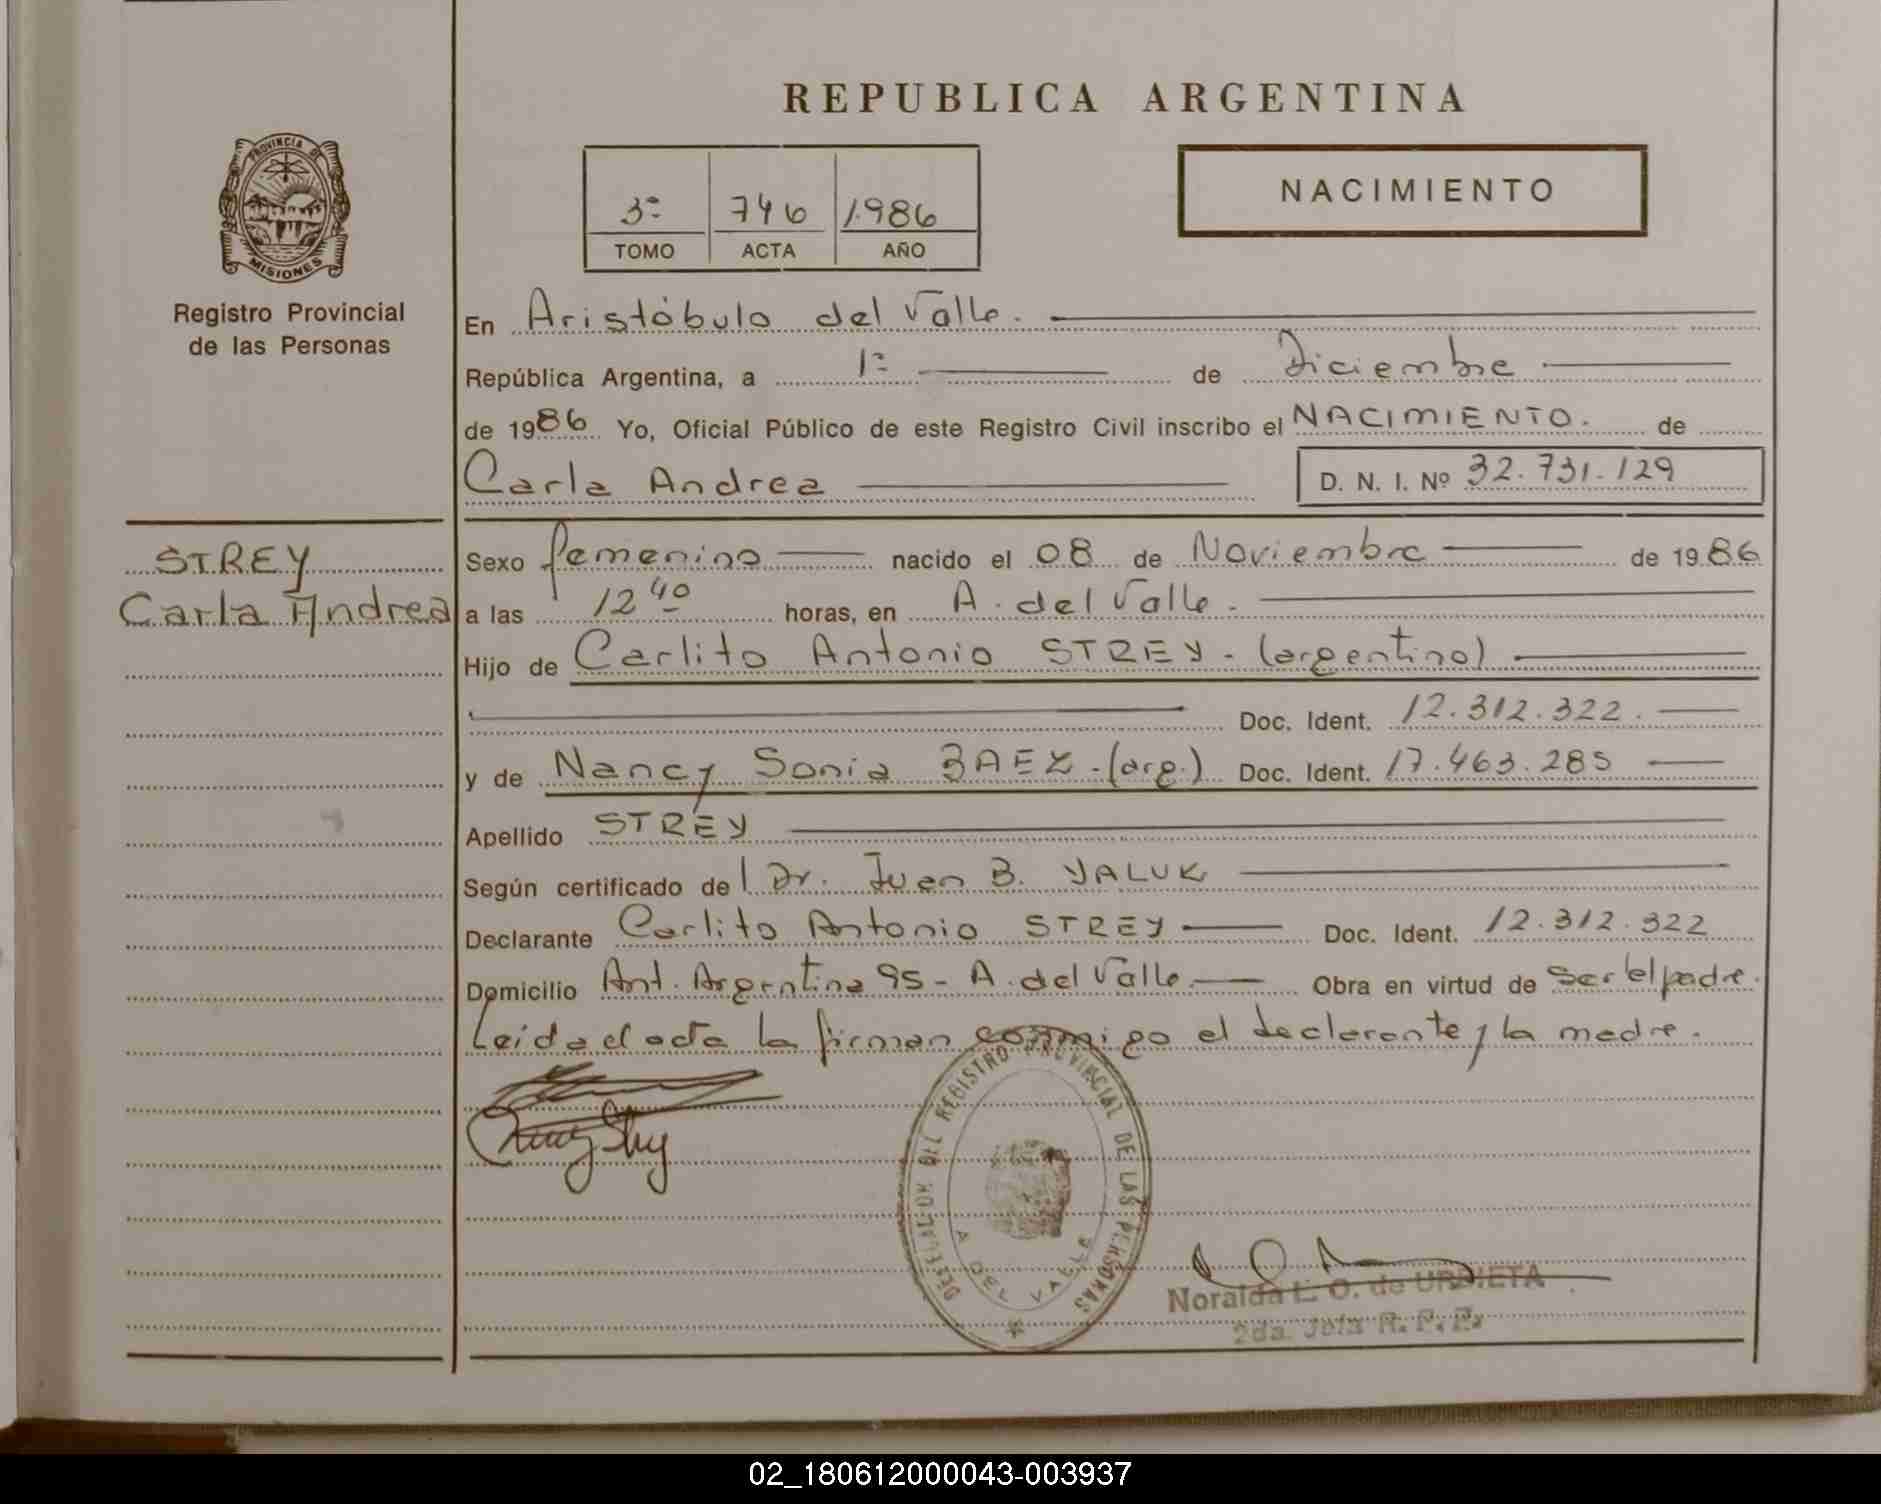 REPUBLICA ARGENTINA
PROVINCIA DE
MISIONES
Registro Provincial
de las Personas
3º 746 1.986
TOMO ACTA AÑO
NACIMIENTO
En Aristóbulo del Valle.
República Argentina, a 1º de Diciembre
de 1986 Yo, Oficial Público de este Registro Civil inscribo el NACIMIENTO. de
Carla Andrea D. N. I. Nº 32.731.129
STREY
Carla Andrea
Sexo femenino nacido el 08 de Noviembre de 1986
a las 12 40 horas, en A. del Valle.
Hijo de Carlito Antonio STREY - (argentino)
Doc. Ident. 12.312.322.
y de Nancy Sonia BAEZ - (arg.) Doc. Ident. 17.463.285
Apellido STREY
Según certificado del Dr. Juan B. YALUK
Declarante Carlito Antonio STREY Doc. Ident. 12.312.322
Domicilio Ant. Argentina 95 - A. del Valle. Obra en virtud de ser el padre.
Leida el acta la firman conmigo el declarante y la madre.
REGISTRO PROVINCIAL DE LAS PERSONAS
A DEL VALLE
Noralda L. O. de URDIETA
2da. Jefa R. P. P.
02_180612000043-003937